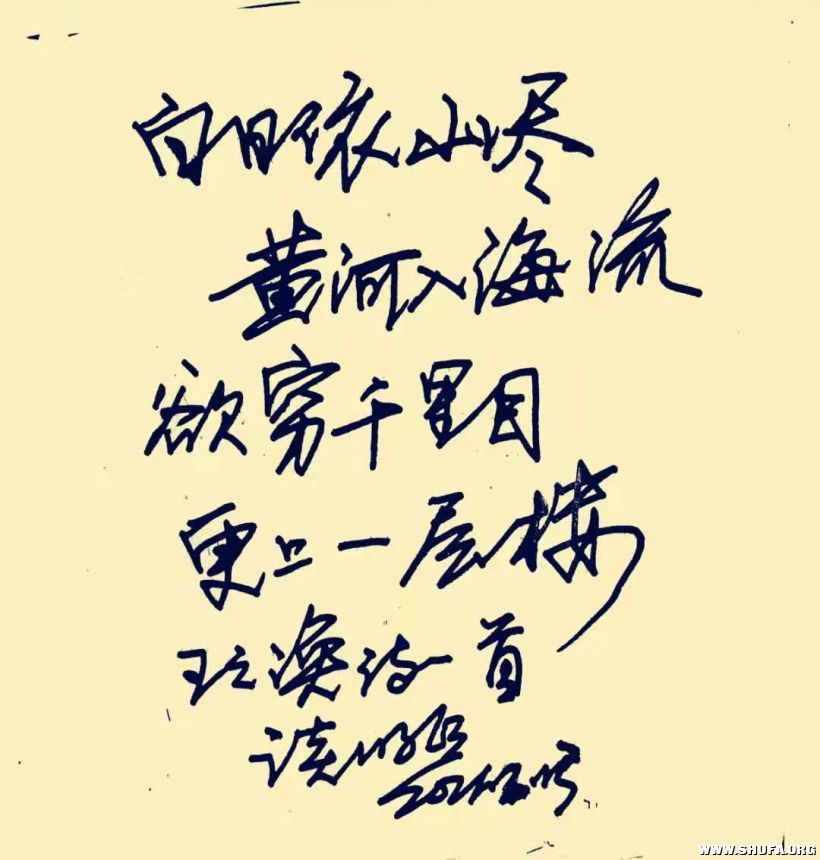 白日依山尽
黄河入海流
欲穷千里目
更上一层楼
王之涣诗一首
WWW.SHUFA.ORG